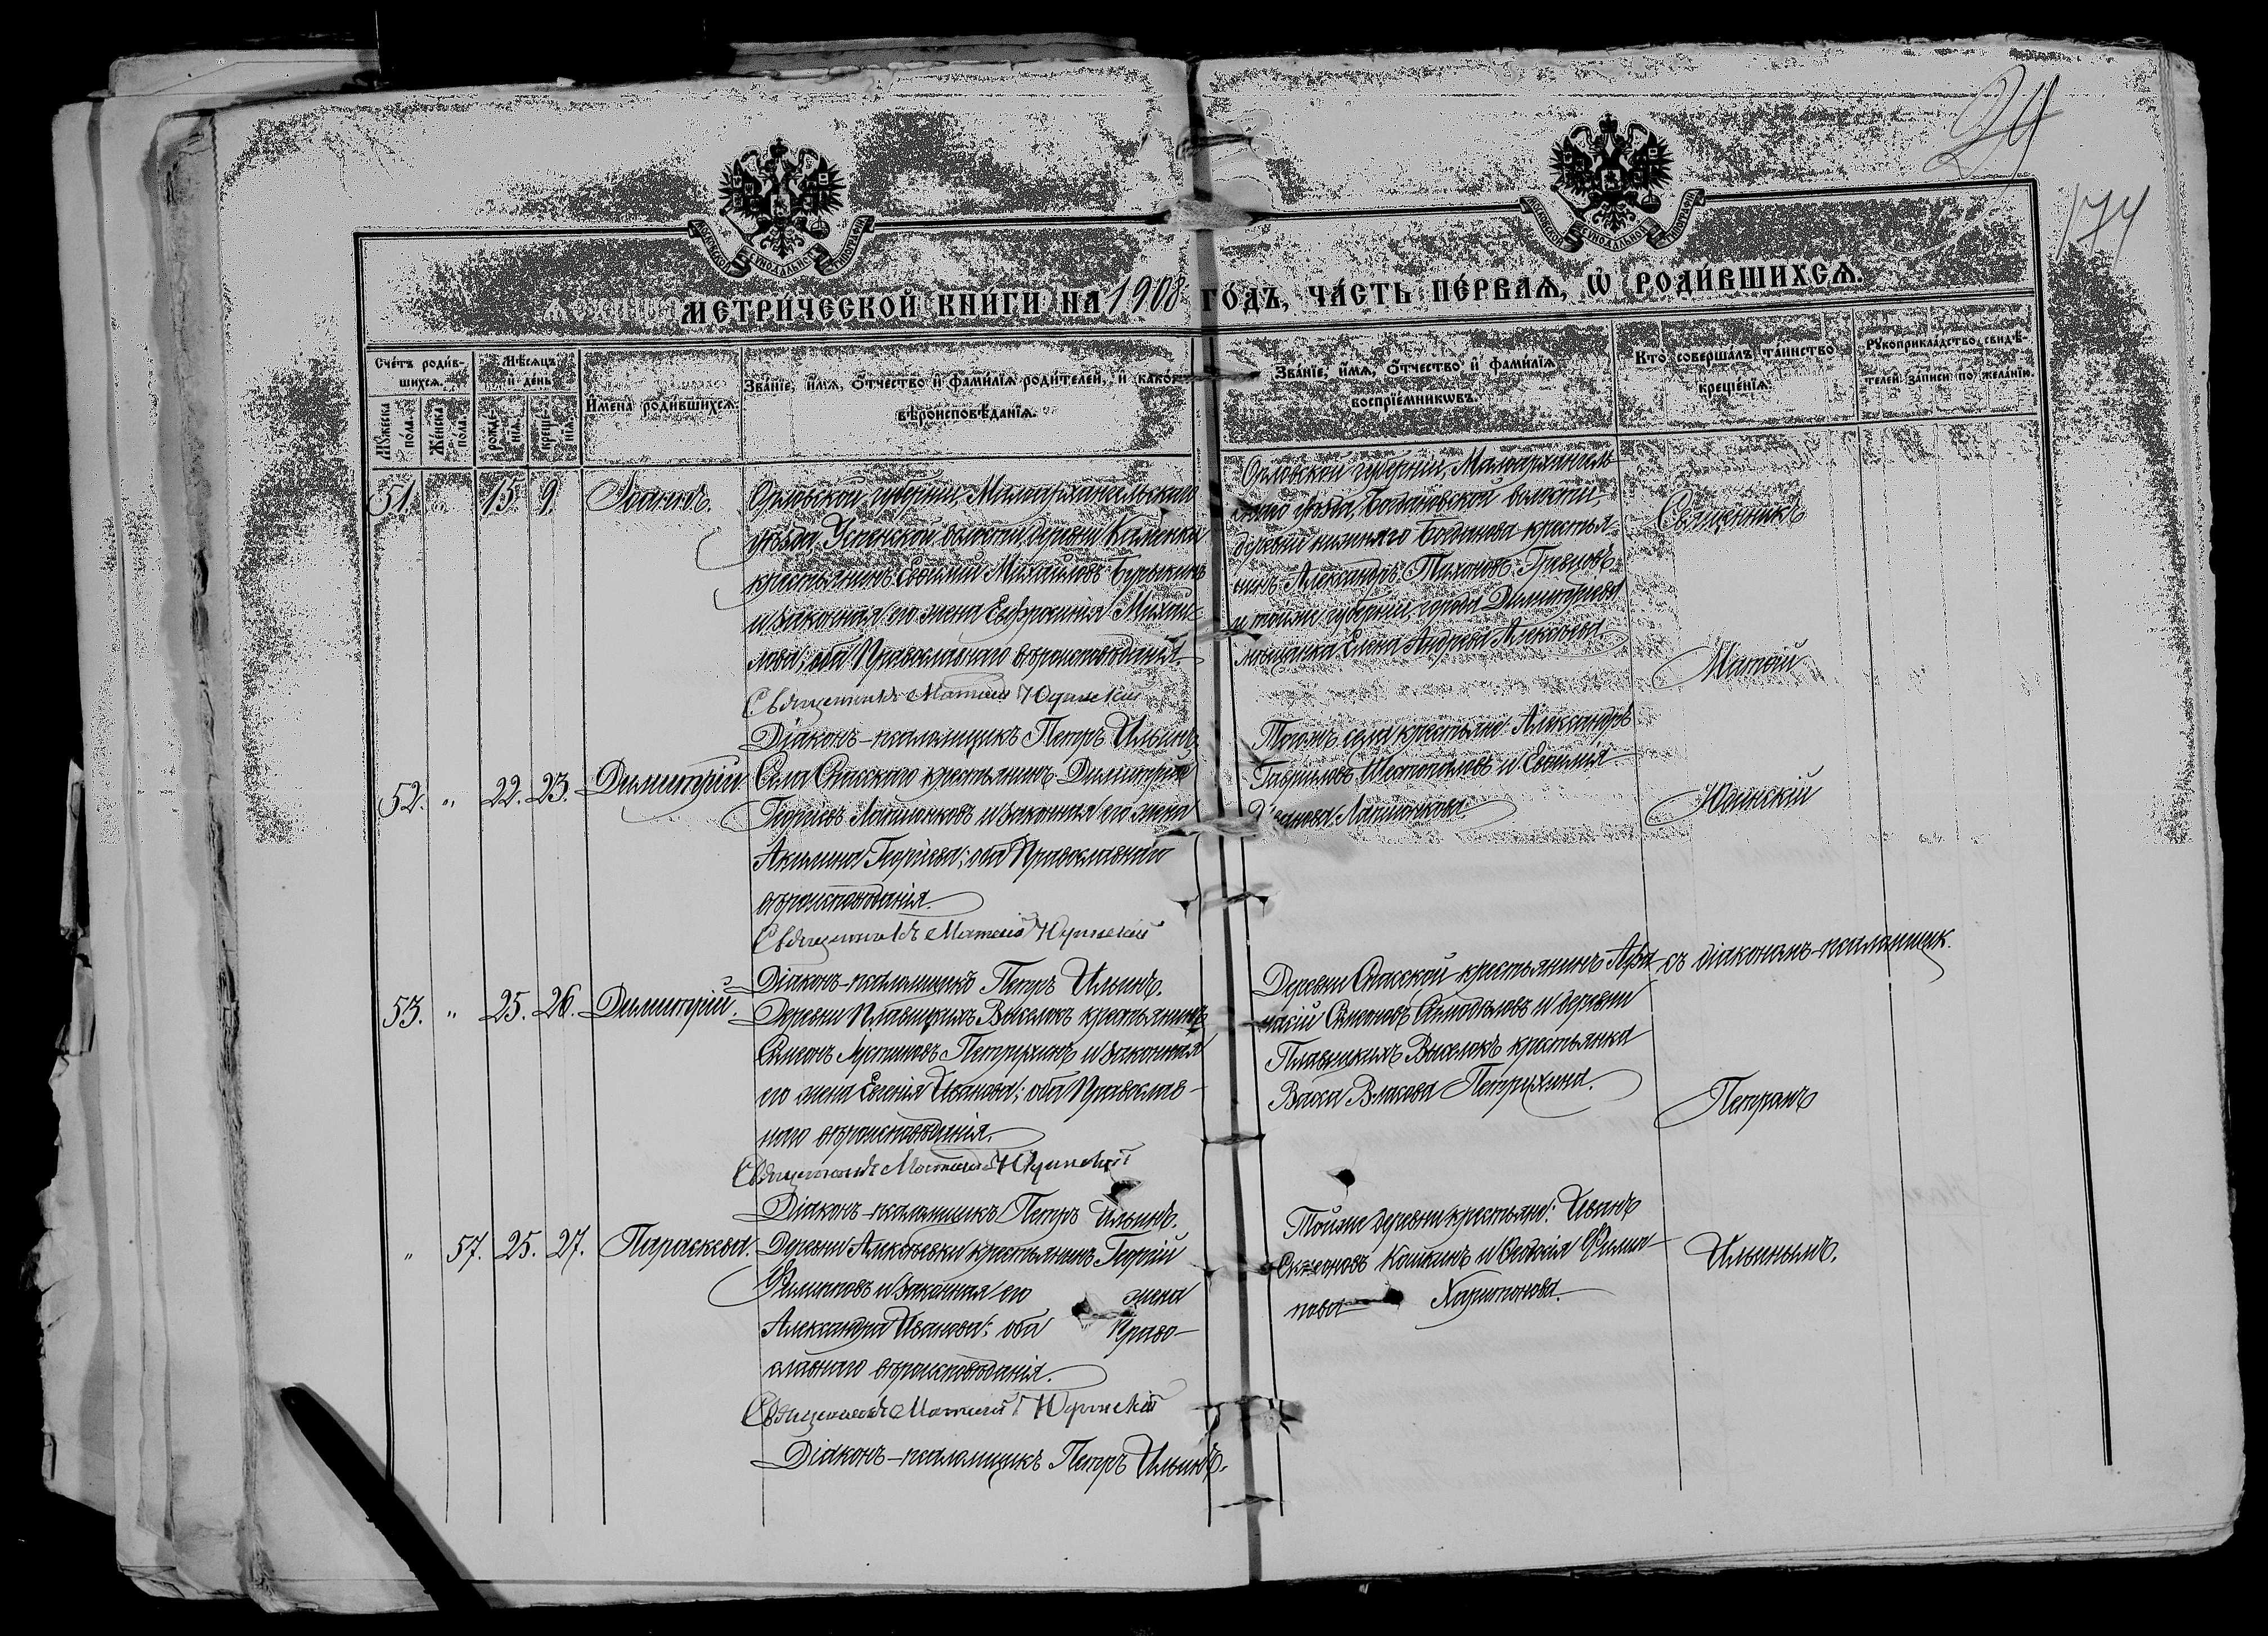 29
174
МОСКОВСКОЙ СѴНОДАЛЬНОЙ ТИПОГРАФІИ
МОСКОВСКОЙ СѴНОДАЛЬНОЙ ТИПОГРАФІИ
МЕТРИ́ЧЕСКОЙ КНИ́ГИ НА 1908 ГО́ДЪ, ЧА́СТЬ ПЕ́РВАѦ, Ѡ РОДИ́ВШИХСѦ.
Сче́тъ роди́в-
шихсѧ.
Мѣ́сѧцъ
и день
Мꙋ́жеска по́ла.
Же́нска по́ла.
рожде-
нїѧ.
креще-
нїѧ.
Имена̀ роди́вшихсѧ.
Зва́нїе, и́мѧ, о́тчество и фами́лїѧ роди́телей, и како́гѡ
вѣроисповѣ́данїѧ.
Зва́нїе, и́мѧ, о́тчество и фами́лїѧ
воспрїе́мникѡвъ.
Кто̀ соверша́лъ та́инство
креще́нїѧ.
Рꙋкоприкла́дство свидѣ́-
телей за́писи по жела́нїю.
51. " 15. 9. Іоаннъ.
Орловской губерніи, Малоархангельскаго
уѣзда, Успенской волости деревни Каменки
крестьянинъ Евѳимій Михайловъ Бурыкинъ
и законная его жена Евфросинія Михай-
лова; оба Православнаго вѣроисповѣданія.
Священникъ Матѳій Юдинскій
Діаконъ-псаломщикъ Петръ Ильинъ.
Орловской губерніи, Малоархангель-
скаго уѣзда, Богдановской волости,
деревни нижняго Богданова крестья-
нинъ Александръ Тихоновъ Гравцовъ
и тойже губерніи, города Димитріева
мѣщанка Елена Андреева Алексѣева.
Священникъ
Матѳій
Юдинскій
52. " 22. 23. Димитрій.
Села Спасскаго крестьянинъ Димитрій
Георгіевъ Лапшонковъ и законная его жена
Акилина Георгіева; оба Православнаго
вѣроисповѣданія.
Священникъ Матѳій Юдинскій
Діаконъ-псаломщикъ Петръ Ильинъ.
Тогожъ села крестьяне: Александръ
Гавриловъ Шестопаловъ и Евѳимія
Иванова Лапшонкова.
53. " 25. 26. Димитрій.
Деревни Плавицкихъ Выселокъ крестьянинъ
Симеонъ Іустиновъ Петрухинъ и законная
его жена Евгенія Иванова; оба Православ-
наго вѣроисповѣданія.
Священникъ Матѳій Юдинскій
Діаконъ-псаломщикъ Петръ Ильинъ.
Деревни Спасской крестьянинъ Афа-
насій Симеоновъ Самодѣловъ и деревни
Плавицкихъ Выселокъ крестьянка
Васса Власова Петрухина.
съ діакономъ-псаломщик.
Петромъ
Ильинымъ.
" 57. 25. 27. Параскева.
Деревни Алексѣевки крестьянинъ Георгій
Филипповъ и законная его жена
Александра Иванова; оба Право-
славнаго вѣроисповѣданія.
Священникъ Матѳій Юдинскій
Діаконъ-псаломщикъ Петръ Ильинъ.
Тойже деревни крестьяне: Иванъ
Симеоновъ Кошкинъ и Ѳеодосія Филип-
пова Харитонова.